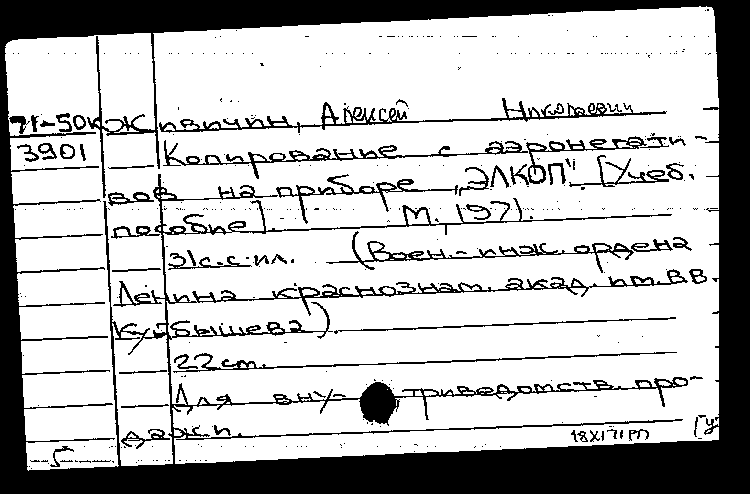 71-50к Живичин, Алексей Николаевич
3901 Копирование с аэронегати-
вов на приборе „ЭЛКОП". [Учеб.
пособие]. М., 1971.
31с. с ил. (Воен.-инж. ордена
Ленина краснознам. акад. им. В.В.
Куйбышева).
22 см.
Для вну- триведомств. про-
дажи.
18XI71РП [У